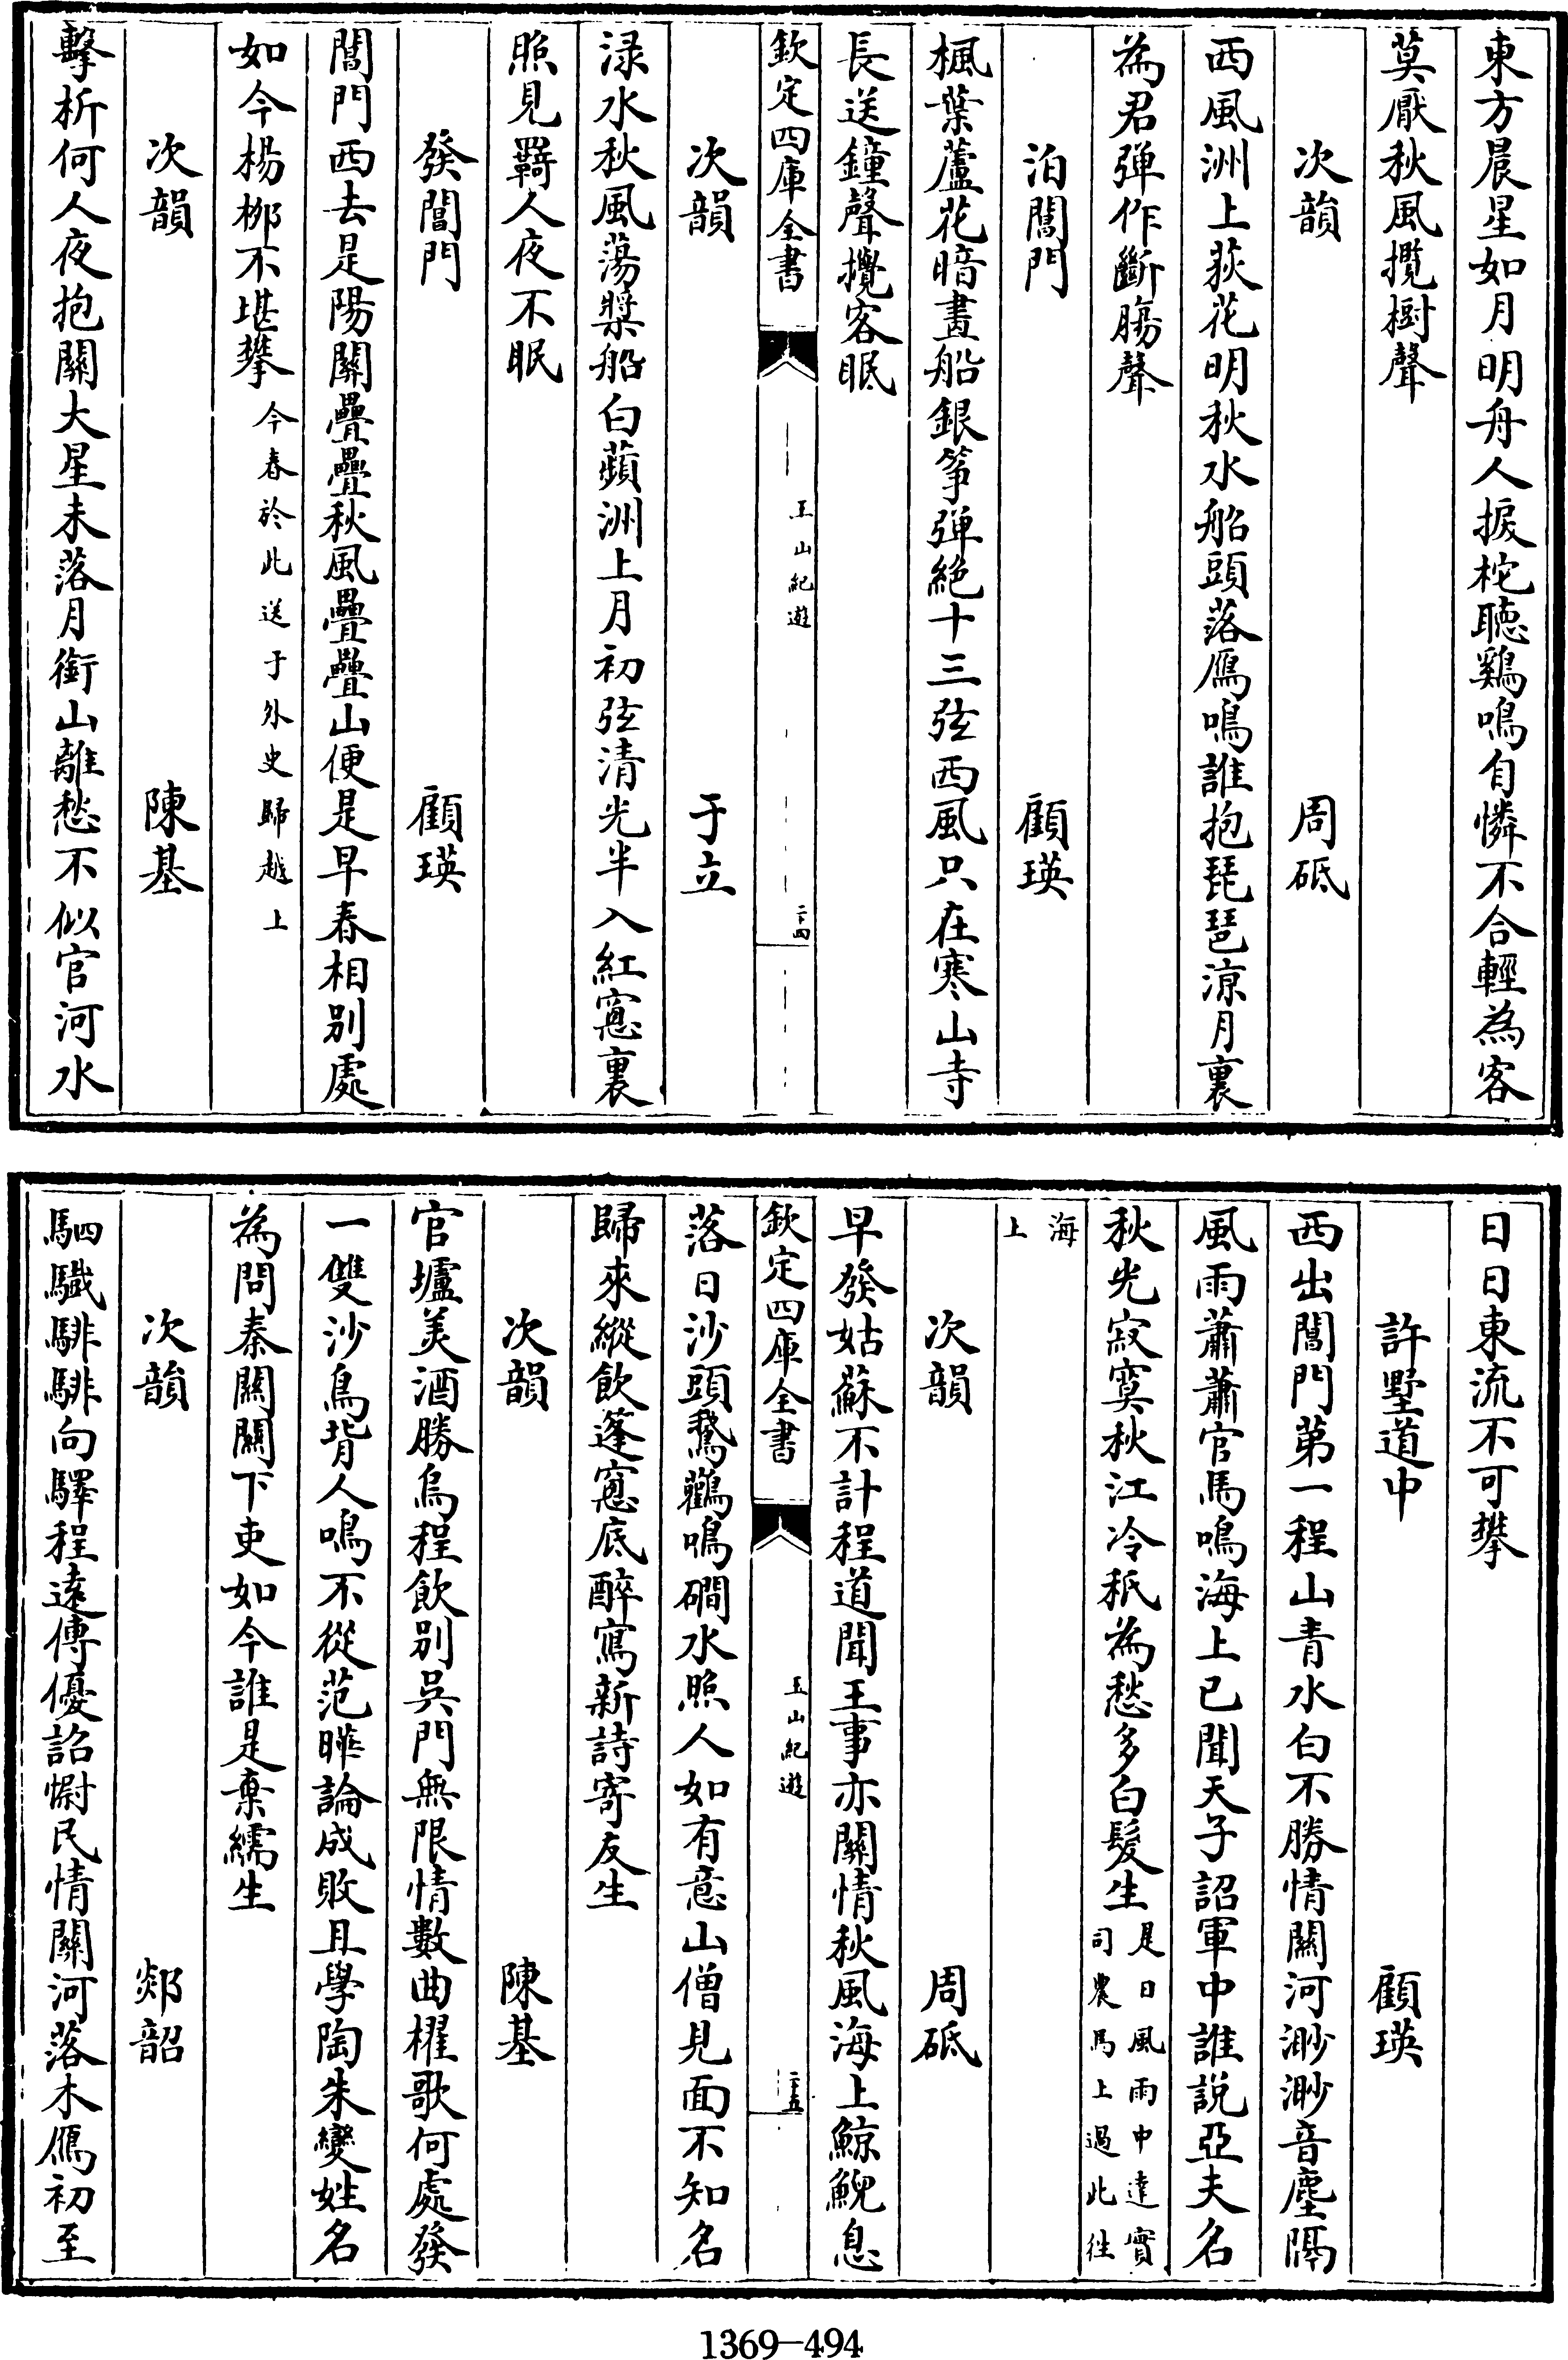 東方晨星如月明舟人捩柁聽鷄鳴自憐不合輕為客
莫厭秋風攪樹聲
次韻 周砥
西風洲上荻花明秋水船頭落鴈鳴誰抱琵琶涼月裏
為君弹作斷腸聲
泊閶門 顧瑛
楓葉蘆花暗畫船銀筝弹絶十三弦西風只在寒山寺
長送鐘聲攪客眠
欽定四庫全書 玉山紀遊 二十四
次韻 于立
渌水秋風蕩槳船白蘋洲上月初弦清光半入紅窓裏
照見羇人夜不眠
發閶門 顧瑛
閶門西去是陽關疊疊秋風疊疊山便是早春相別處
如今楊桞不堪攀 今春於此送于外史歸越上
次韻 陳基
擊柝何人夜抱關大星未落月銜山離愁不似官河水
日日東流不可攀
許墅道中 顧瑛
西出閶門第一程山青水白不勝情關河渺渺音塵隔
風雨蕭蕭官馬鳴海上已聞天子詔軍中誰說亞夫名
秋光寂寞秋江冷秖為愁多白髮生 是日風雨中達實司農馬上過此往
海上
次韻 周砥
早發姑蘇不計程道聞王事亦關情秋風海上鯨鯢息
欽定四庫全書 玉山紀遊 二十五
落日沙頭鵞鸛鳴磵水照人如有意山僧見面不知名
歸來縱飲蓬窓底醉寫新詩寄友生
次韻 陳基
官壚美酒勝烏程飲別吳門無限情數曲櫂歌何處發
一雙沙鳥背人鳴不從范睢論成敗且學陶朱變姓名
為問秦關關下吏如今誰是棄繻生
次韻 郯韶
駟驖騑騑向驛程遠傳優詔慰民情關河落木鴈初至
1369—494